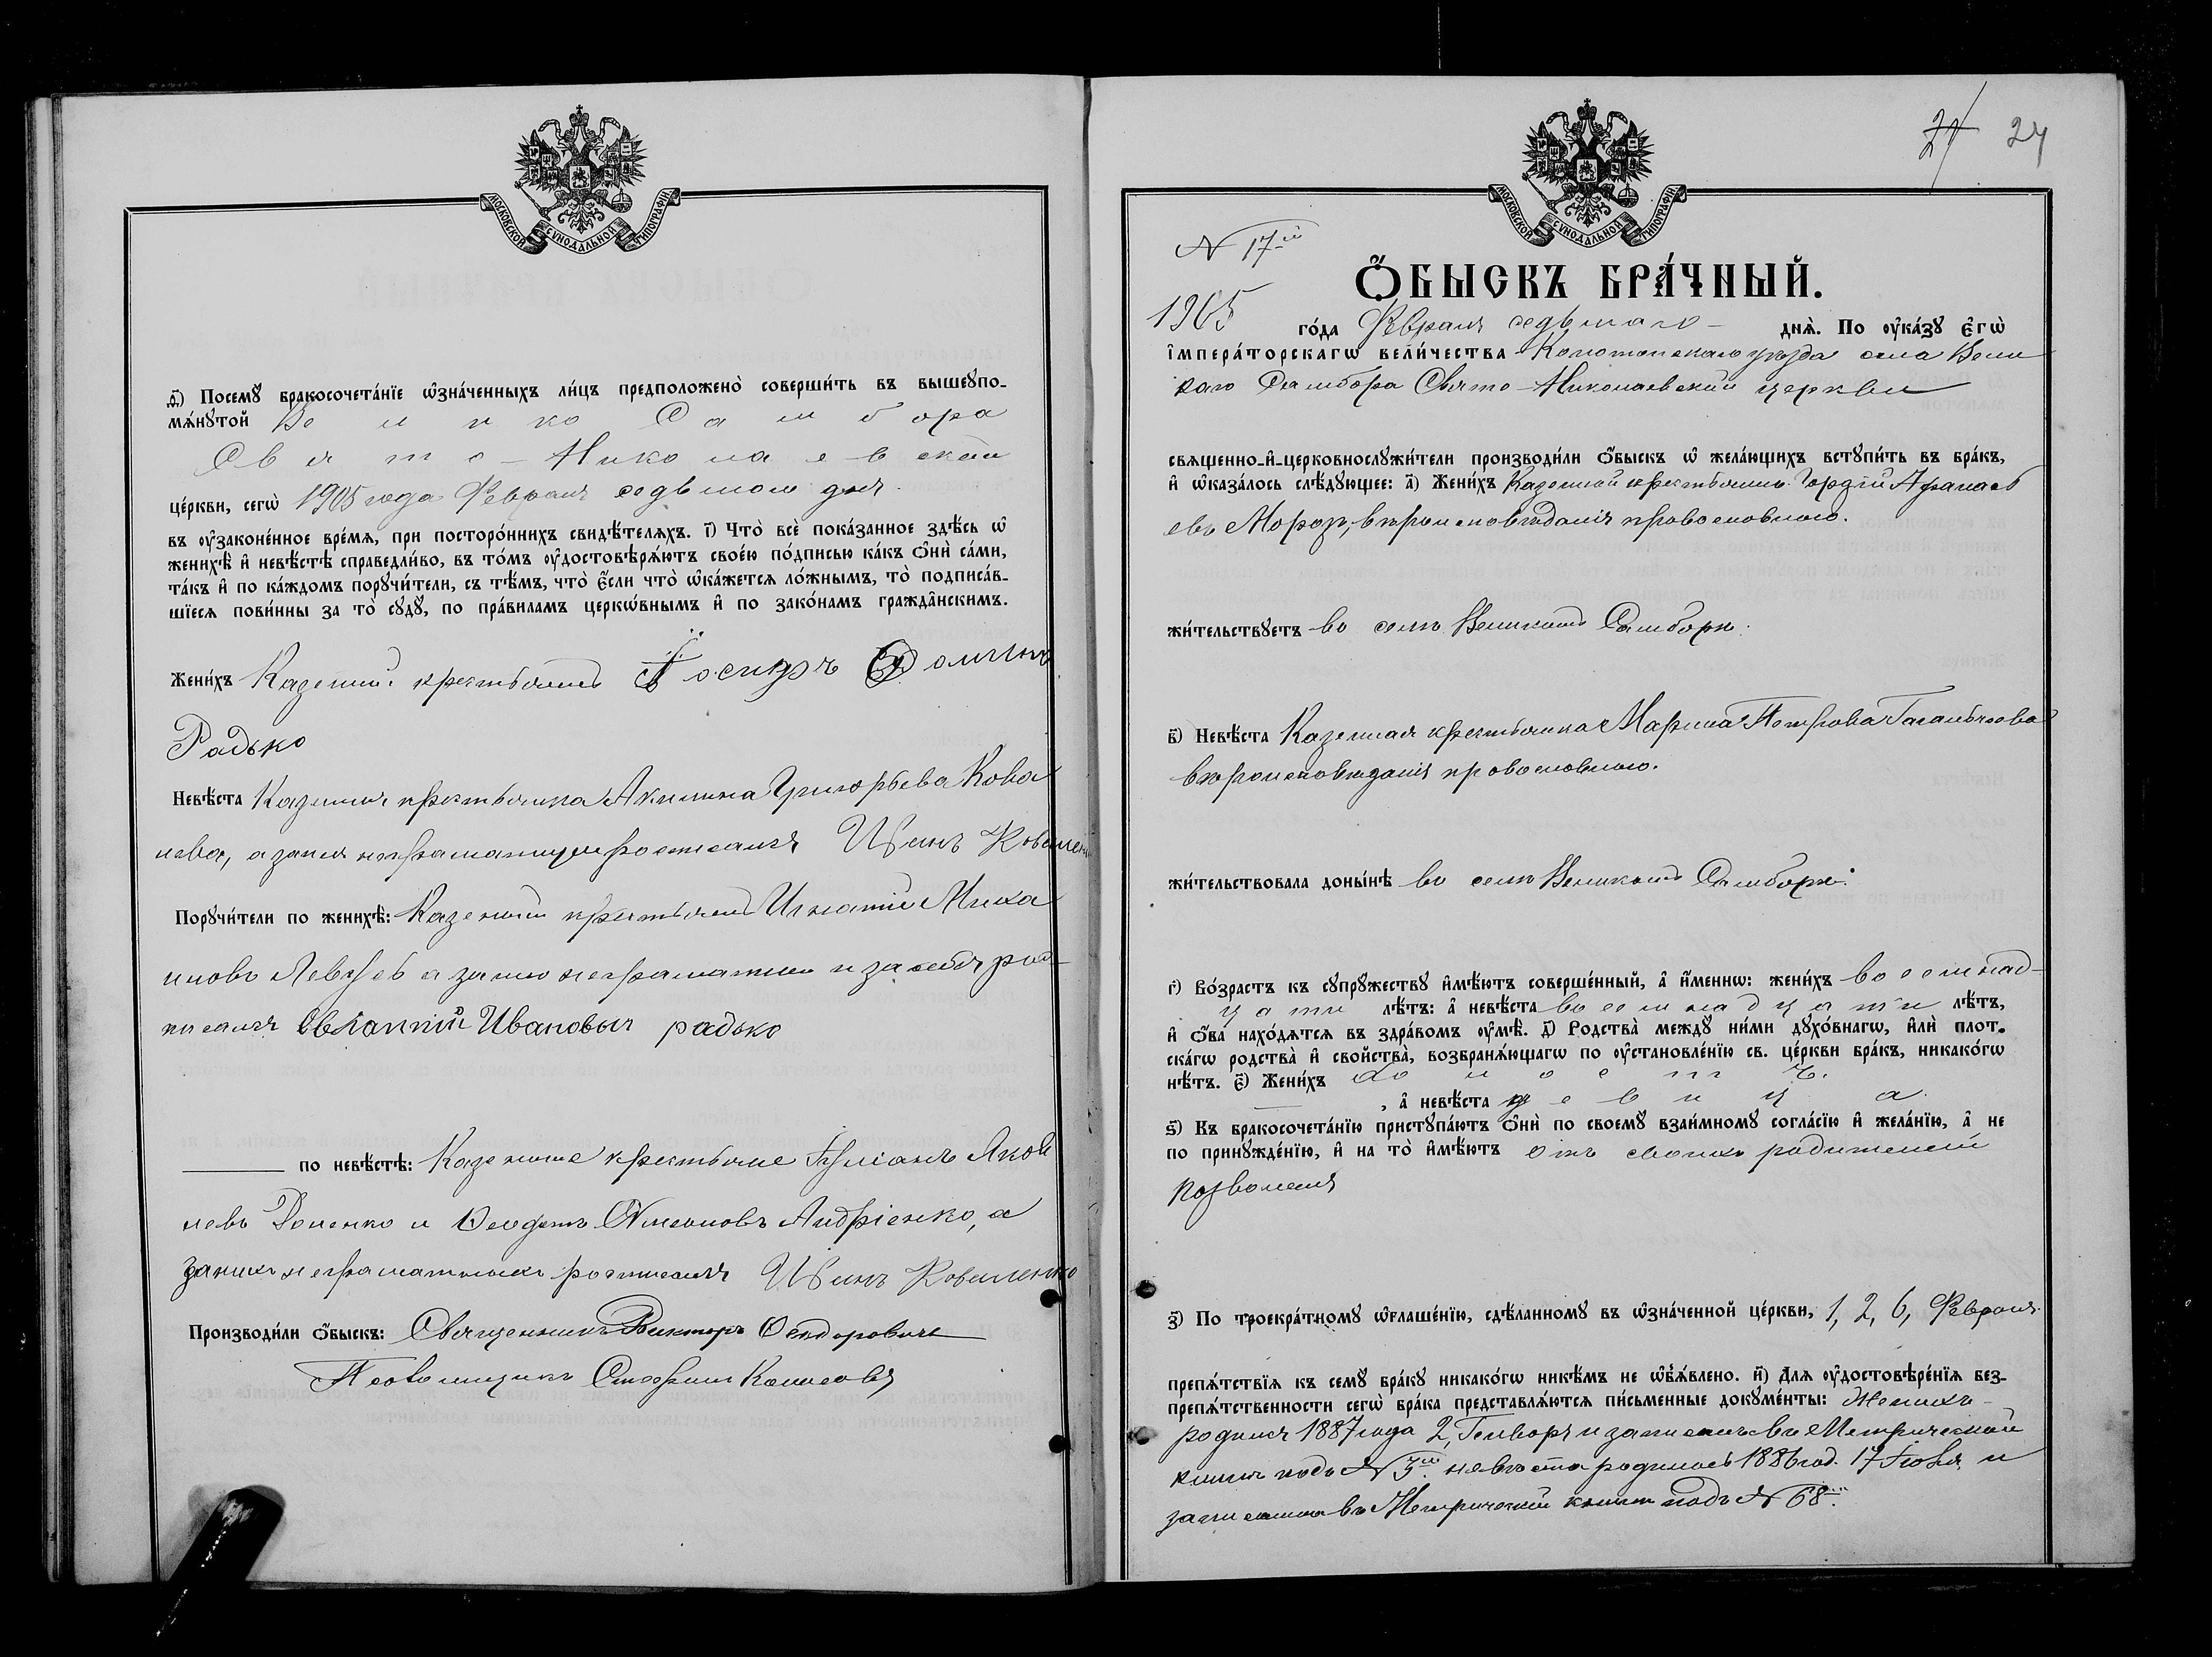 МОСКОВСКОЙ СѴНОДАЛЬНОЙ ТИПОГРАФІИ
ѳ҃) Посемꙋ̀ бракосочета́нїе ѡ҆зна́ченныхъ ли́цъ предположено̀ соверши́ть въ вышеꙋпо-
мѧ́нꙋтой Велико Самбора
Свято-Николаевской
це́ркви, сегѡ̀ 1905 года Февраля седьмого дня.
въ ᲂу҆законе́нное вре́мѧ, при посторо́ннихъ свидѣ́телѧхъ. і҃) Что̀ всѐ пока́занное здѣ́сь ѡ҆
женихѣ̀ и҆ невѣ́стѣ справедли́во, въ то́мъ ᲂу҆достовѣрѧ́ютъ свое́ю по́дписью ка́къ ѻ҆нѝ са́ми,
та́къ и҆ по ка́ждомъ порꙋчи́тели, съ тѣ́мъ, что̀ є҆́сли что̀ ѡ҆ка́жетсѧ ло́жнымъ, то̀ подписа́в-
шїесѧ пови́нны за то̀ сꙋдꙋ̀, по пра́виламъ церко́внымъ и҆ по зако́намъ гражда̑нскимъ.
Жени́хъ Казенный крестьянинъ Іосифъ Фоминъ
Радько
Невѣ́ста Казенная крестьянка Акилина Григорьева Кова
лева, а за нея неграмотную росписался Иванъ Коваленко
Порꙋчи́тели по женихѣ̀: Казенный крестьянинъ Игнатій Миха
иловъ а за него неграмотнаго и за себя рос-
писался Евлампій Ивановыч радько
по невѣ́стѣ: Казенные крестьяне Іуліанъ Яков
левъ Доценко и Феодотъ Симеоновъ Андріенко, а
за нихъ неграмотныхъ росписался Иванъ Коваленко
Производи́ли ѻ҆́быскъ: Священникъ Викторъ Федоровичъ
Псаломщикъ Стефанъ
МОСКОВСКОЙ СѴНОДАЛЬНОЙ ТИПОГРАФІИ
24
N 17й
Ѻ҆́БЫСКЪ БРА́ЧНЫЙ.
1905 го́да Февраля седьмаго - днѧ̀. По ᲂу҆ка́зꙋ є҆гѡ̀
і҆мпера́торскагѡ вели́чества Конотопскаго уѣзда села Вели
каго Самбора Свято-Николаевской церкви
свѧщенно-и҆-церковнослꙋжи́тели производи́ли ѻ҆́быскъ ѡ҆ жела́ющихъ встꙋпи́ть въ бра́къ,
и҆ ѡ҆каза́лось слѣ́дꙋющее: а҃) Жени́хъ Казенный крестьянинъ Гордій Афанась
евъ Мороз, вѣроисповѣданія православного.
жи́тельствꙋетъ въ селѣ Великомъ Самборѣ.
в҃) Невѣ́ста Казенная крестьянка Марина Петрова
вѣроисповѣданія православного.
жи́тельствовала доны́нѣ въ селѣ Великомъ Самборѣ.
г҃) Во́зрастъ къ сꙋпрꙋ́жествꙋ и҆мѣ́ютъ соверше́нный, а҆ и҆́меннѡ: жени́хъ восемнад-
цати лѣ́тъ: а҆ невѣ́ста восемнадцати лѣ́тъ,
и҆ ѻ҆́ба нахо́дѧтсѧ въ здра́вомъ ᲂу҆мѣ̀. д҃) Родства̀ междꙋ̀ ни́ми дꙋхо́внагѡ, и҆лѝ плот-
ска́гѡ родства̀ и҆ свойства̀, возбранѧ́ющагѡ по ᲂу҆становле́нїю св. це́ркви бра́къ, никако́гѡ
нѣ́тъ. є҃) Жени́хъ холостъ.
, а҆ невѣ́ста девица.
ѕ҃) Къ бракосочета́нїю пристꙋпа́ютъ ѻ҆нѝ по своемꙋ̀ взаи́мномꙋ согла́сїю и҆ жела́нїю, а҆ не
по принꙋжде́нїю, и҆ на то̀ и҆мѣ́ютъ отъ своихъ родителей
позволенія
з҃) По троекра́тномꙋ ѡ҆глаше́нїю, сдѣ́ланномꙋ въ ѡ҆зна́ченной це́ркви, 1, 2, 6, Февраля
препѧ́тствїѧ къ семꙋ̀ бра́кꙋ никако́гѡ никѣ́мъ не ѡ҆бъѧ́влено. и҃) Длѧ ᲂу҆достовѣре́нїѧ без-
препѧ́тственности сегѡ̀ бра́ка представлѧ́ютсѧ пи́сьменные докꙋме́нты: Женихъ
родился 1887 года 2, Генворя и записанъ въ Метрической
книгѣ подъ N 3м. невѣста родилась 1886 год. 17 Іюля и
записана въ Метрической книгѣ подъ N 68м.